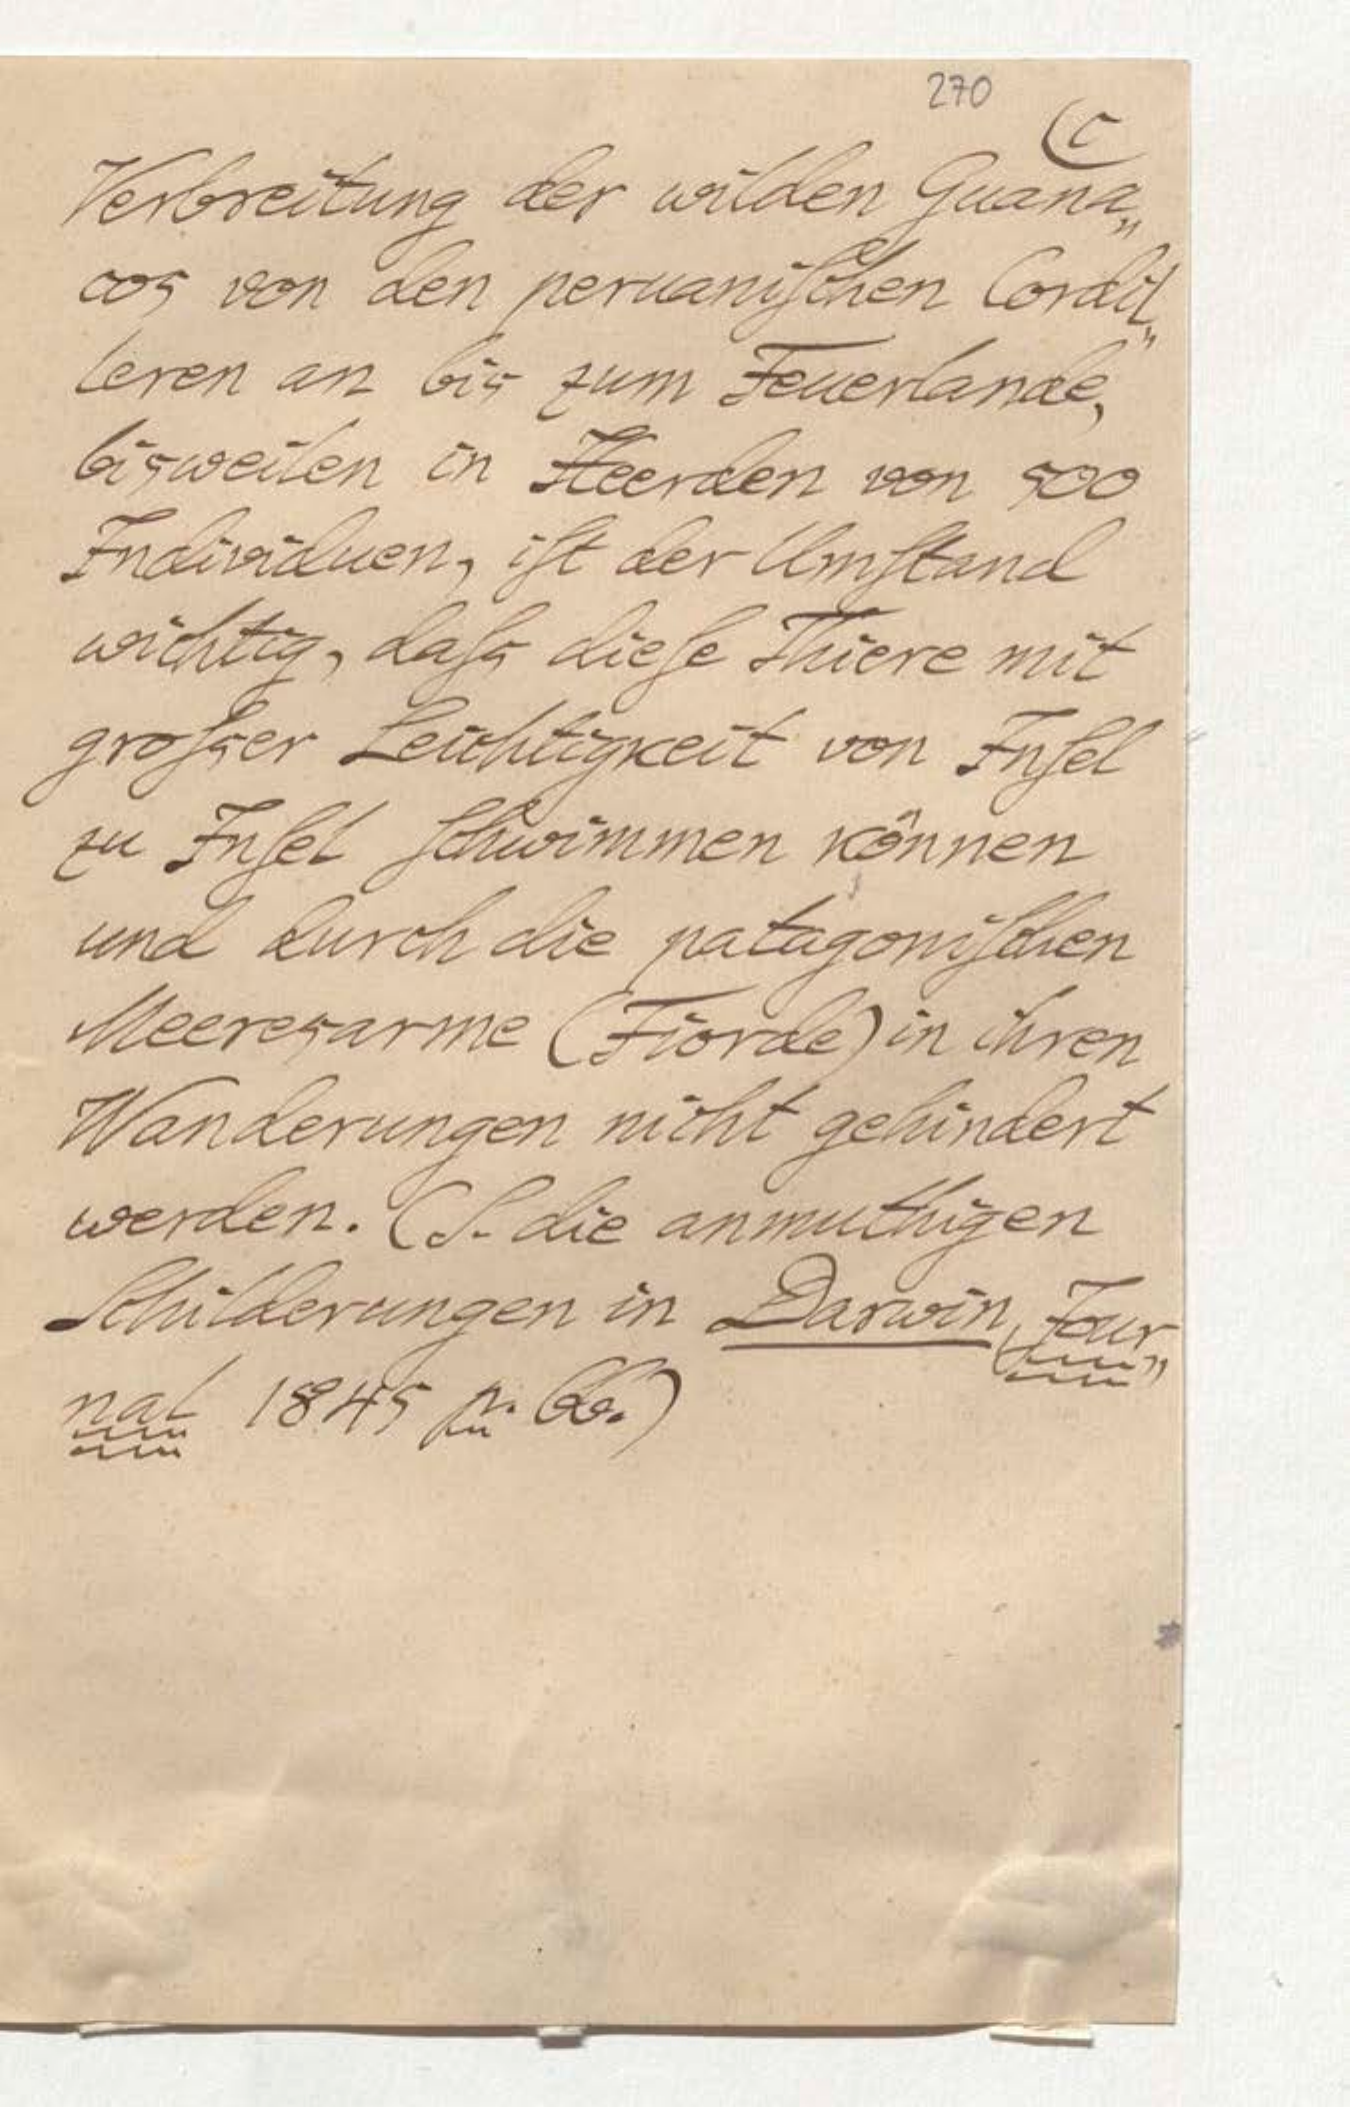 270
(c
Verbreitung der wilden Guana„
cos von den peruaniſchen Cordil„
leren an bis zum Feuerlande,
bisweilen in Heerden von 500
Individuen, iſt der Umſtand
wichtig, daſs dieſe Thiere mit
groſser Leichtigkeit von Inſel
zu Inſel ſchwimmen können
und durch die patagoniſchen
Meeresarme (Fiorde) in ihren
Wanderungen nicht gehindert
werden. (S. die anmuthigen
Schilderungen in Darwin, Jour„
nal 1845 p. 66.)